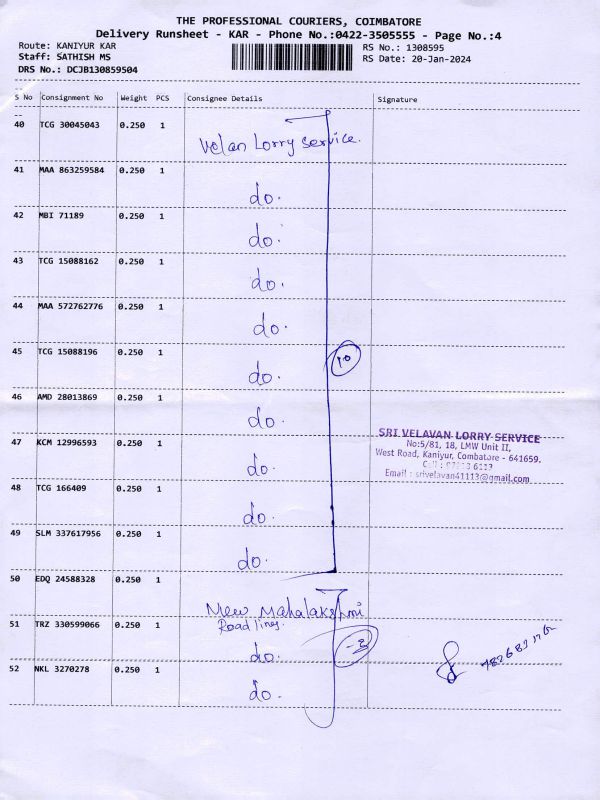 THE PROFESSIONAL COURIERS, COIMBATORE
Delivery Runsheet - KAR - Phone No.:0422-3505555 - Page No.:4
Route: KANIYUR KAR
Staff: SATHISH MS
DRS No.: DCJB130859504
RS No.: 1308595
RS Date: 20-Jan-2024
S No Consignment No Weight PCS Consignee Details Signature
40 TCG 30045043 0.250 1 Velan Lorry service.
41 MAA 863259584 0.250 1 do.
42 MBI 71189 0.250 1 do.
43 TCG 15088162 0.250 1 do.
44 MAA 572762776 0.250 1 do.
45 TCG 15088196 0.250 1 do. 10
46 AMD 28013869 0.250 1 do.
47 KCM 12996593 0.250 1 do.
SRI VELAVAN LORRY SERVICE
No:5/81, 18, LMW Unit II,
West Road, Kaniyur, Combatore - 641659.
Cell :
Email : srivelavan41113@gmail.com
48 TCG 166409 0.250 1 do.
49 SLM 337617956 0.250 1 do.
50 EDQ 24588328 0.250 1 New Mahalakshmi
Road lines.
51 TRZ 330599066 0.250 1 do. -3
52 NKL 3270278 0.250 1 do.